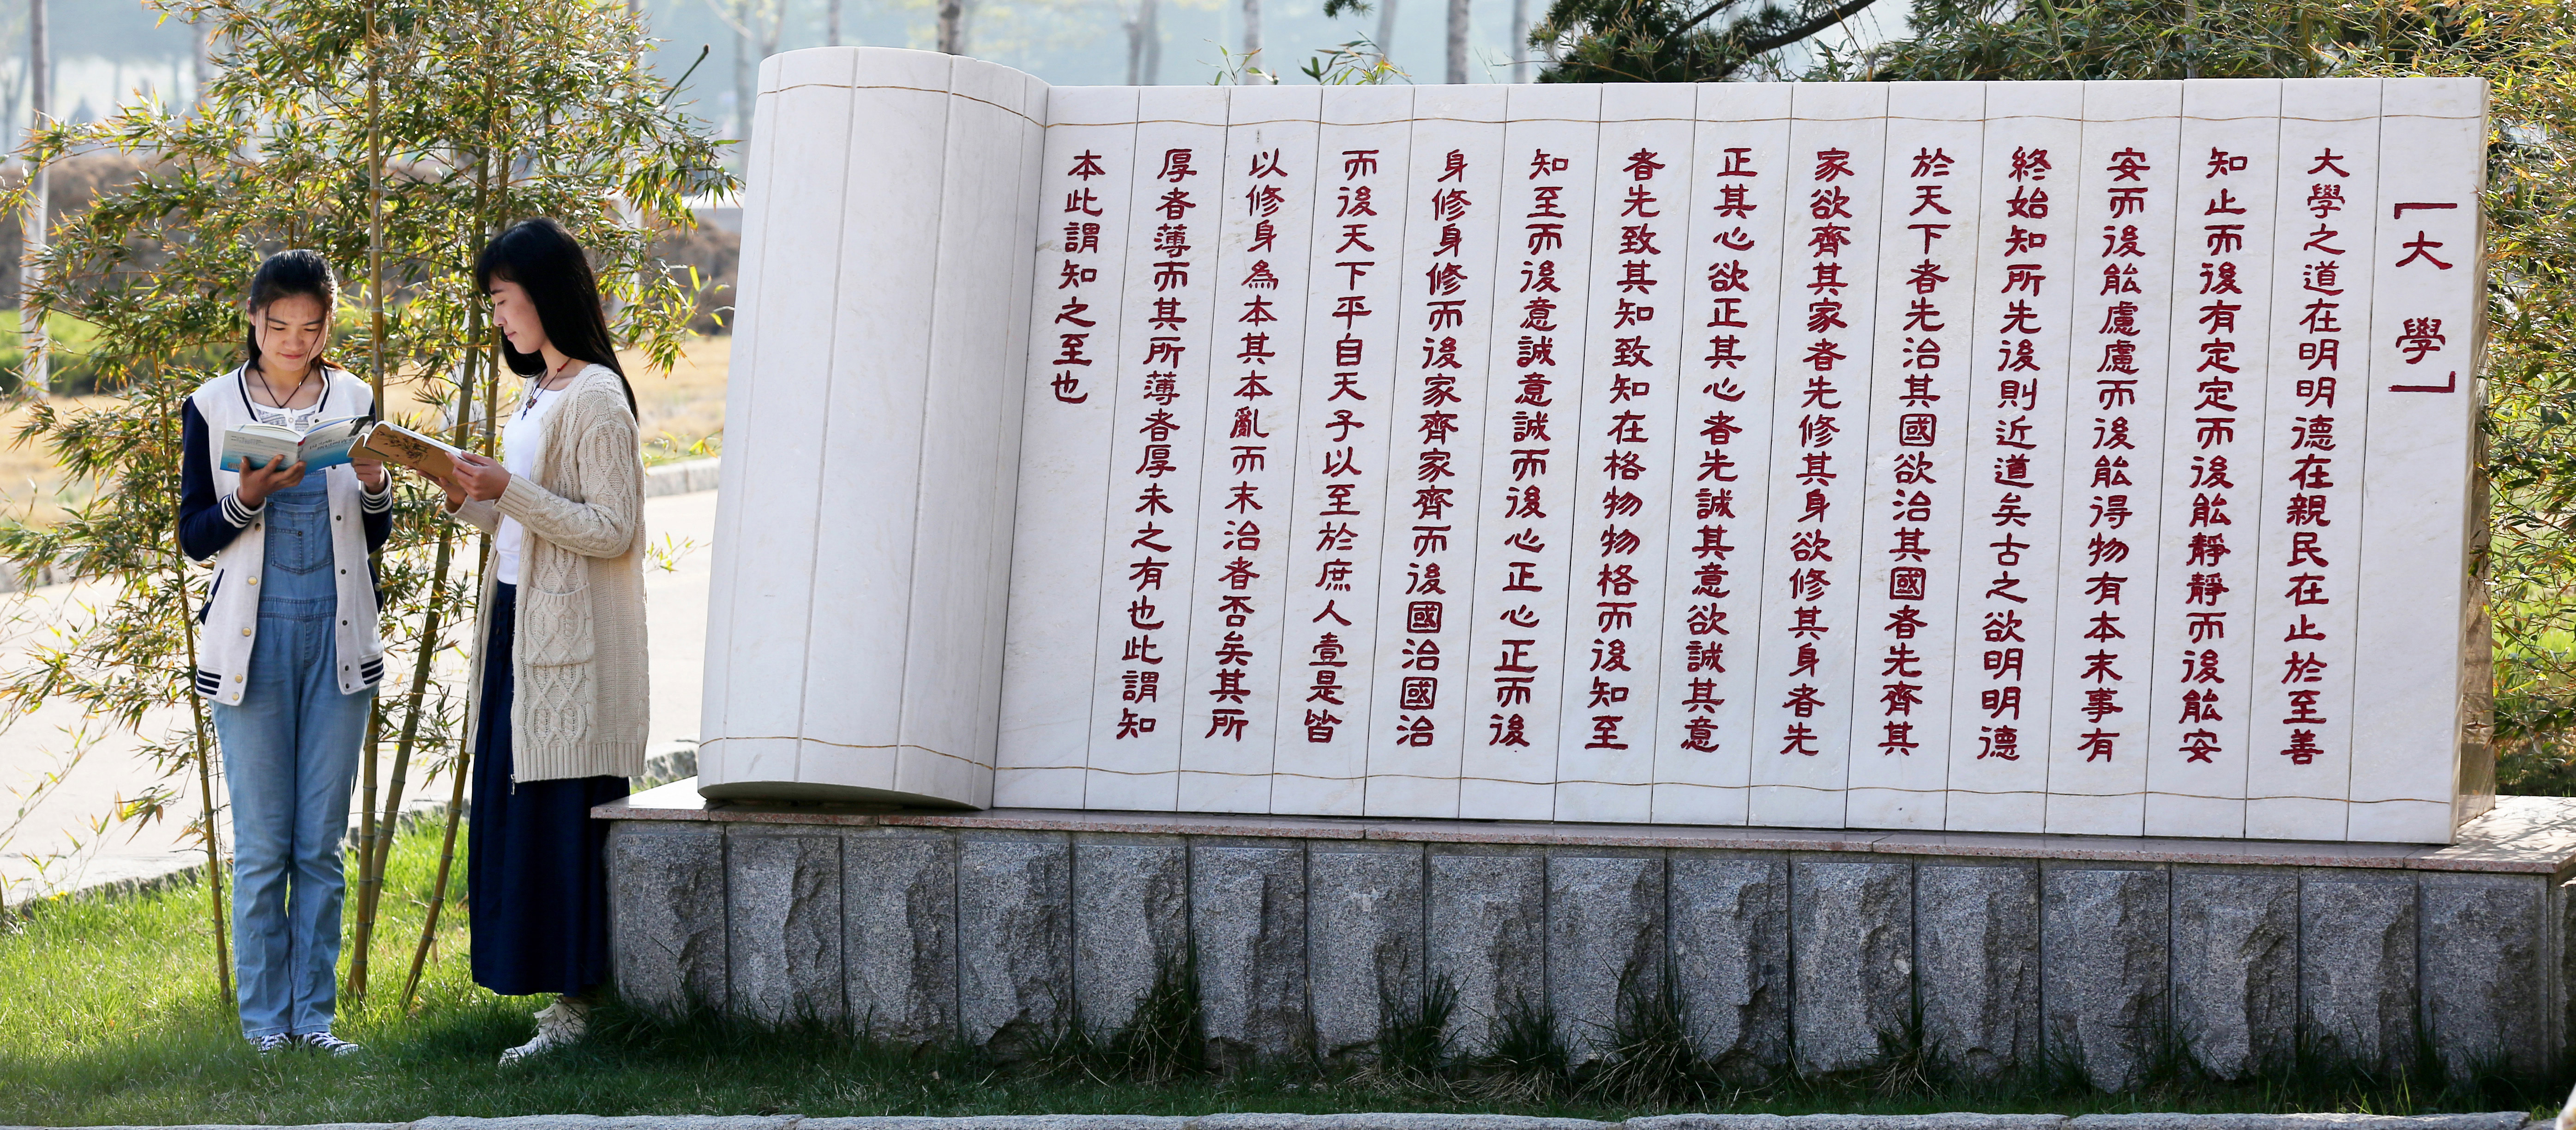 ［大學］
大學之道在明明德在親民在止於至善
知止而後有定定而後能靜靜而後能安
安而後能慮慮而後能得物有本末事有
終始知所先後則近道矣古之欲明明德
於天下者先治其國欲治其國者先齊其
家欲齊其家者先修其身欲修其身者先
正其心欲正其心者先誠其意欲誠其意
者先致其知致知在格物物格而後知至
知至而後意誠意誠而後心正心正而後
身修身修而後家齊家齊而後國治國治
而後天下平自天子以至於庶人壹是皆
以修身為本其本亂而末治者否矣其所
厚者薄而其所薄者厚未之有也此謂知
本此謂知之至也